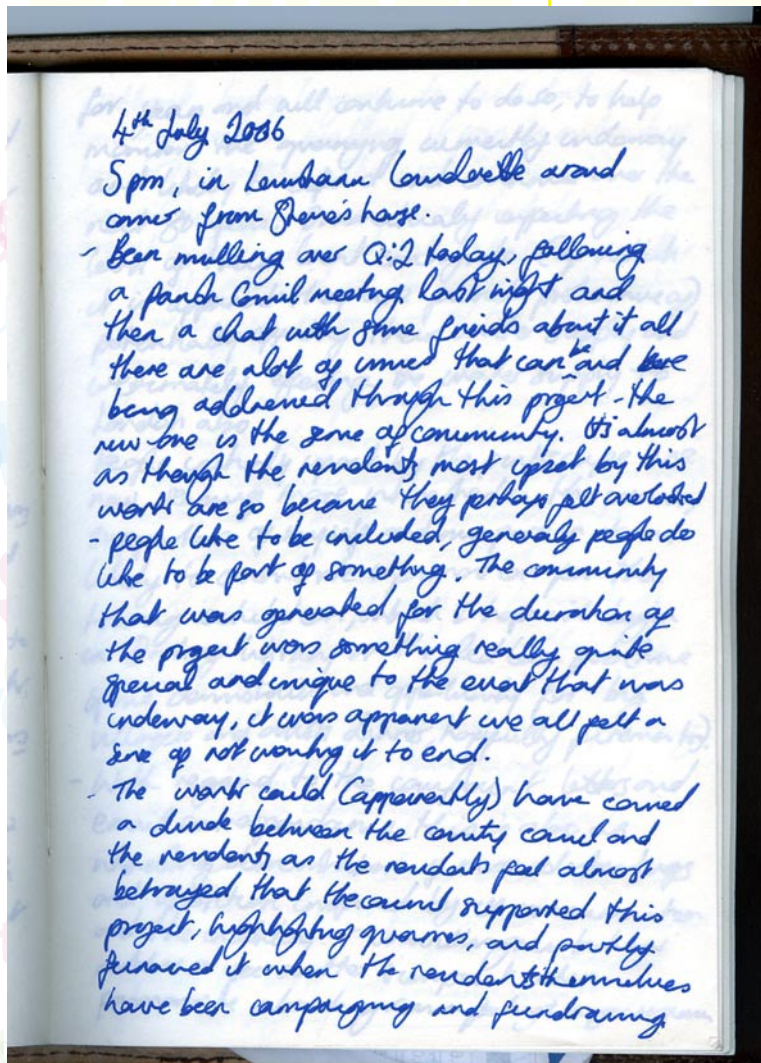 4th July 2006
5pm, in Lewisham launderette around
corner from Steve's house.
- Been mulling over Q:2 today, following
a parish council meeting last night and
then a chat with some friends about it all
there are alot of issues that can be and are
being addressed through this project - the
new one is the sense of community. It's almost
as though the residents most upset by this
work are so because they perhaps felt overlooked
- people like to be included, generaly people do
like to be part of something. The community
that was generated for the duration of
the project was something really quite
special and unique to the event that was
underway, it was apparent we all felt a
sense of not wanting it to end.
- The work could (apparently) have caused
a divide between the county council and
the residents as the residents feel almost
betrayed that the council supported this
project, highlighting quarries, and partly
financed it when the residents themselves
have been campaigning and fundraising